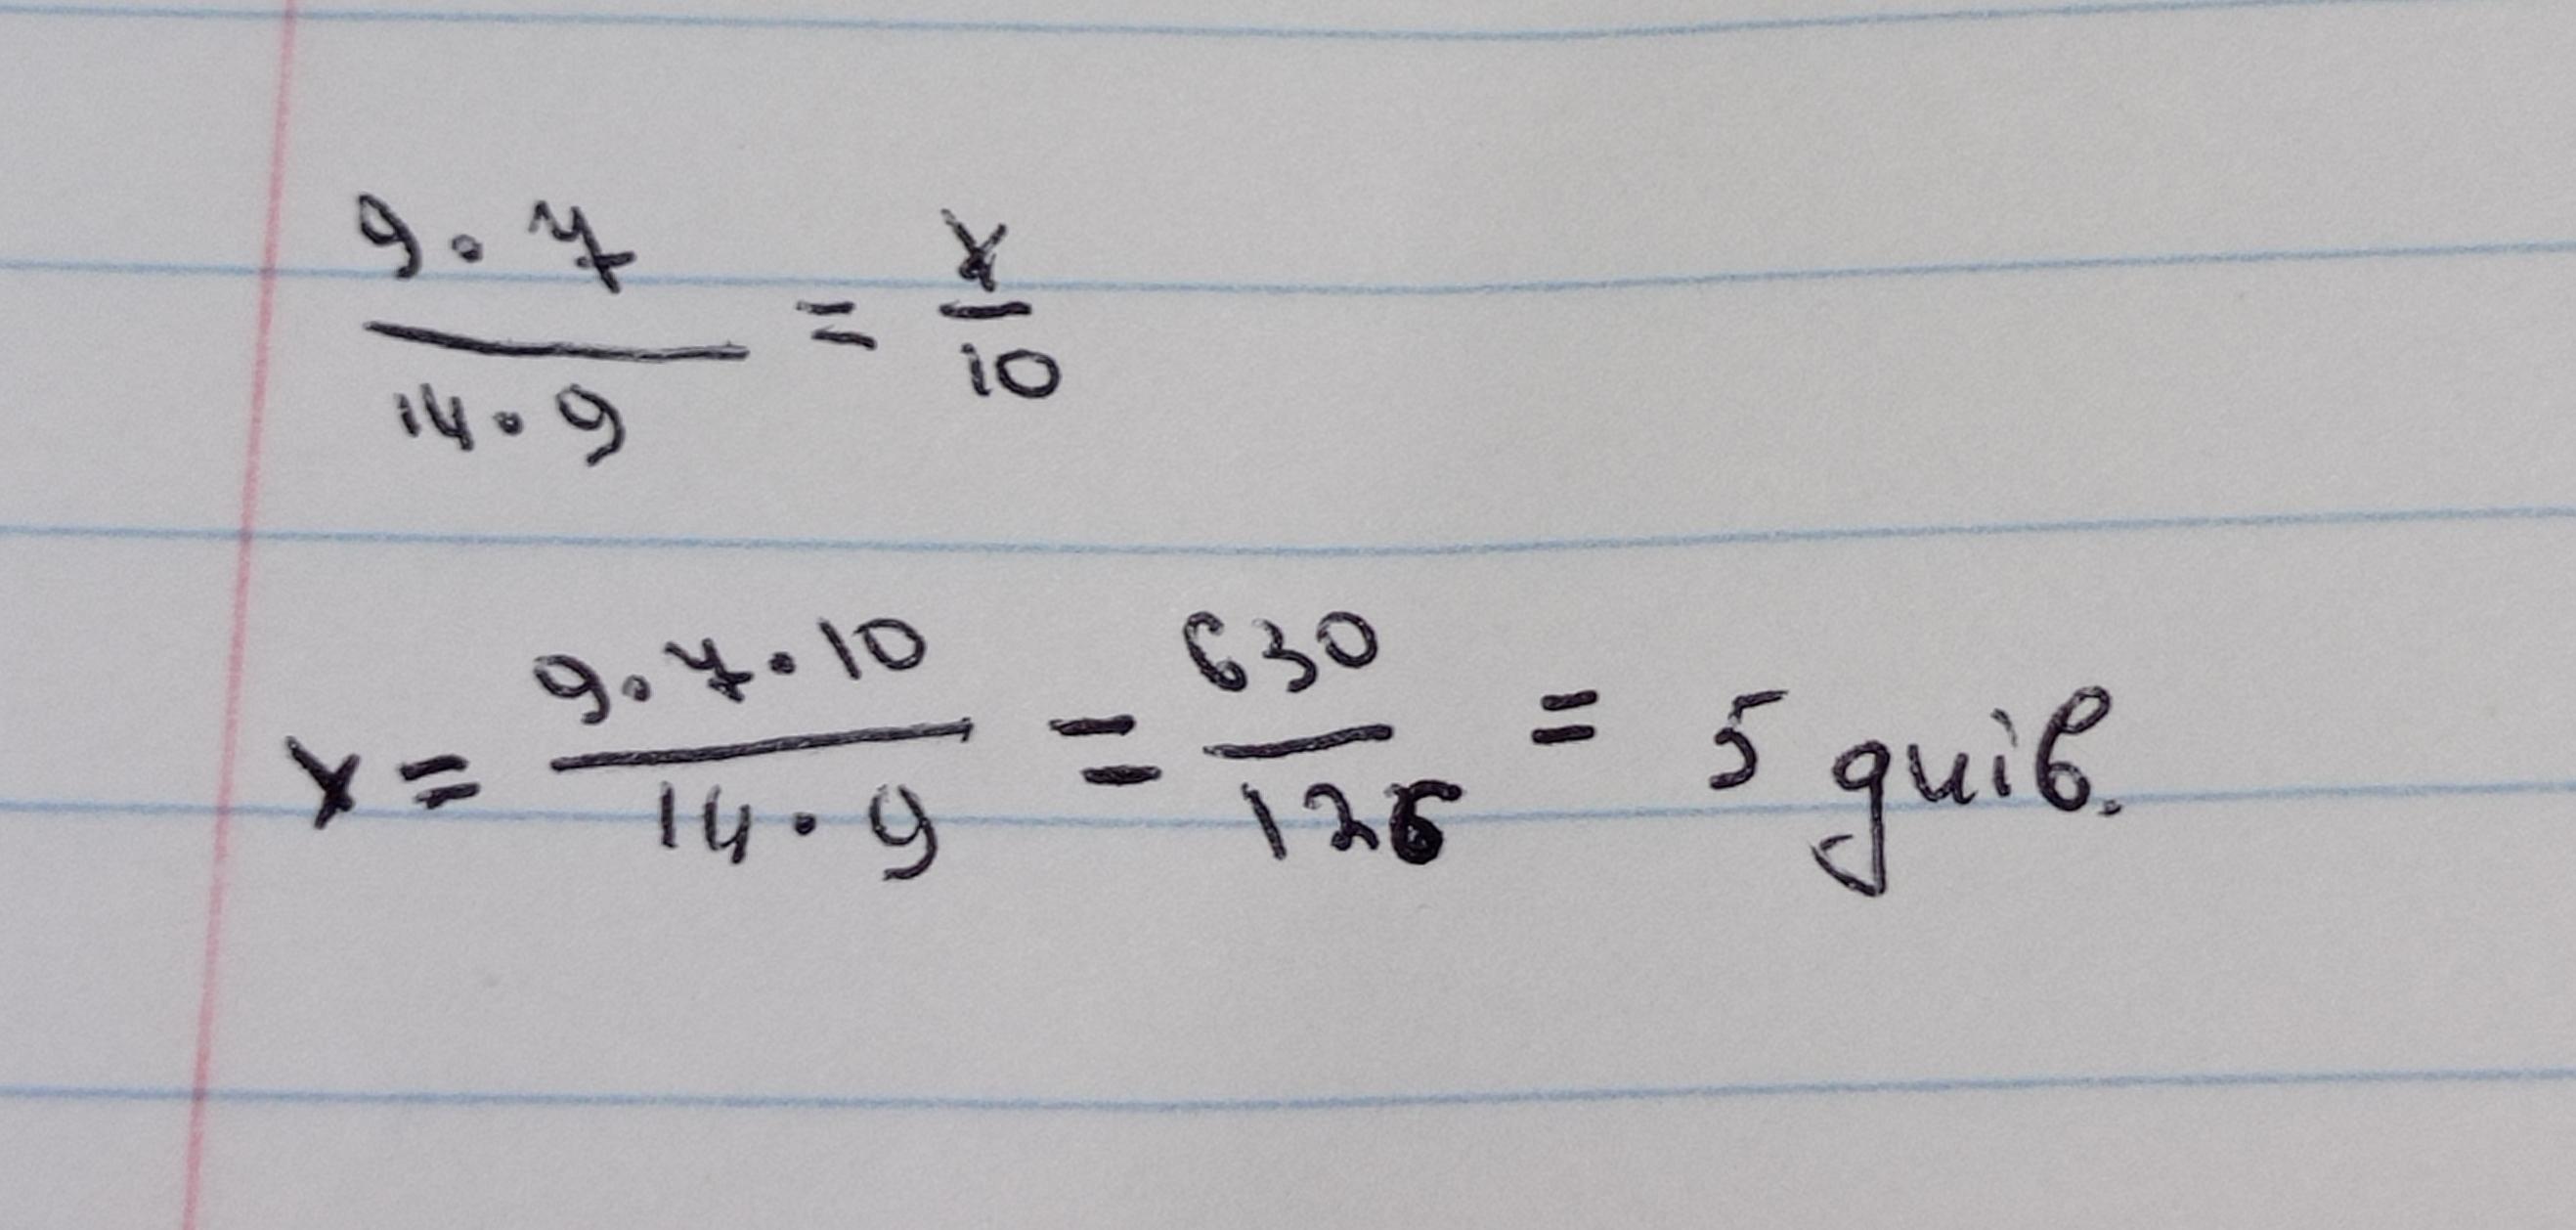 9 · 7 / 14 · 9 = x / 10
x = 9 · 7 · 10 / 14 · 9 = 630 / 126 = 5 днів.